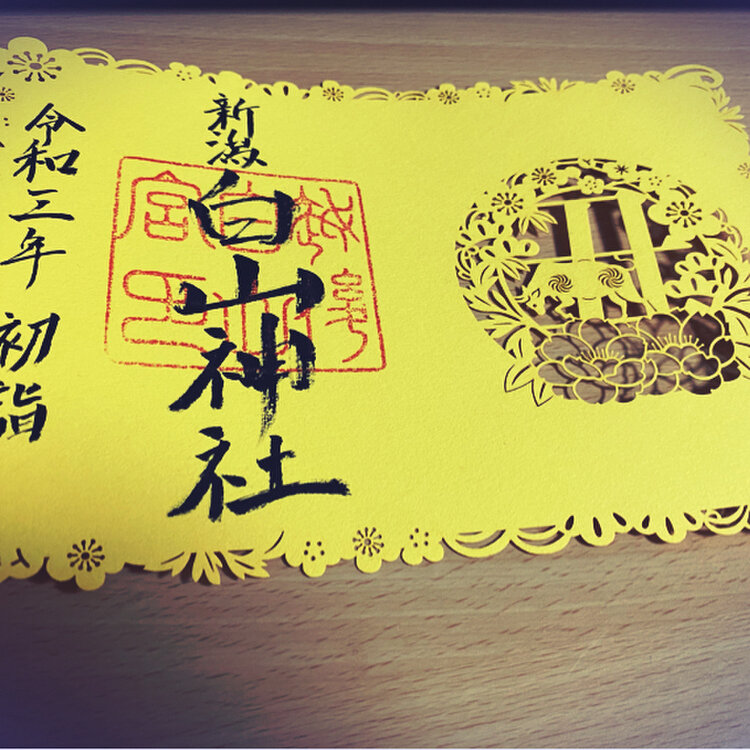 新潟
白山神社
令和三年 初詣